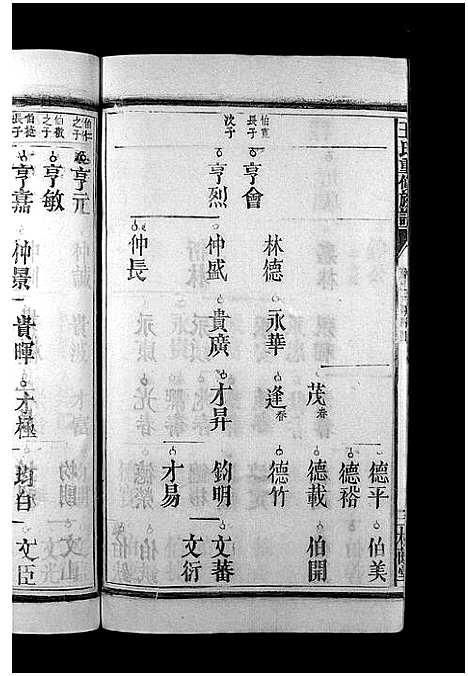 王氏重修族譜
德平 伯美
德裕
茂春 德載 伯開
林德 永華 逢春 德竹
伯寬長子 亨會
次子 亨烈 仲盛 貴廣 才昇 鈞明 文蕃
文衍
才易
仲長
伯仁之子 亨元
伯敬之子 亨敏
長子 亨嘉 仲景 貴暉 才極 均自 文臣